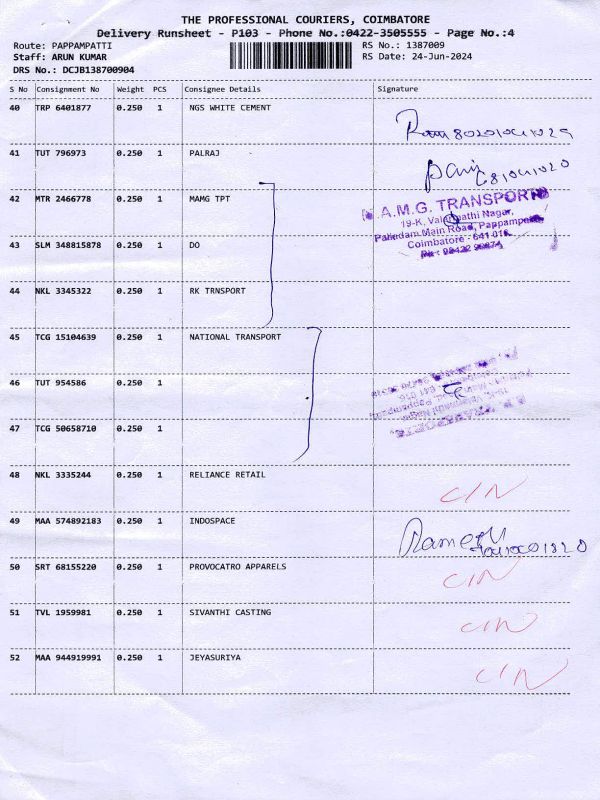 THE PROFESSIONAL COURIERS, COIMBATORE
Delivery Runsheet - P103 - Phone No.:0422-3505555 - Page No.:4
Route: PAPPAMPATTI RS No.: 1387009
Staff: ARUN KUMAR RS Date: 24-Jun-2024
DRS No.: DCJB138700904
S No Consignment No Weight PCS Consignee Details Signature
40 TRP 6401877 0.250 1 NGS WHITE CEMENT
41 TUT 796973 0.250 1 PALRAJ
42 MTR 2466778 0.250 1 MAMG TPT
A.M.G. TRANSPORT
Nagar,
Palladam Main Road, Pappampatti
Coimbatore - 641 016.
43 SLM 348815878 0.250 1 DO
44 NKL 3345322 0.250 1 RK TRNSPORT
45 TCG 15104639 0.250 1 NATIONAL TRANSPORT
46 TUT 954586 0.250 1
47 TCG 50658710 0.250 1
48 NKL 3335244 0.250 1 RELIANCE RETAIL C/N
49 MAA 574892183 0.250 1 INDOSPACE Ramesh
50 SRT 68155220 0.250 1 PROVOCATRO APPARELS C/N
51 TVL 1959981 0.250 1 SIVANTHI CASTING C/N
52 MAA 944919991 0.250 1 JEYASURIYA C/N